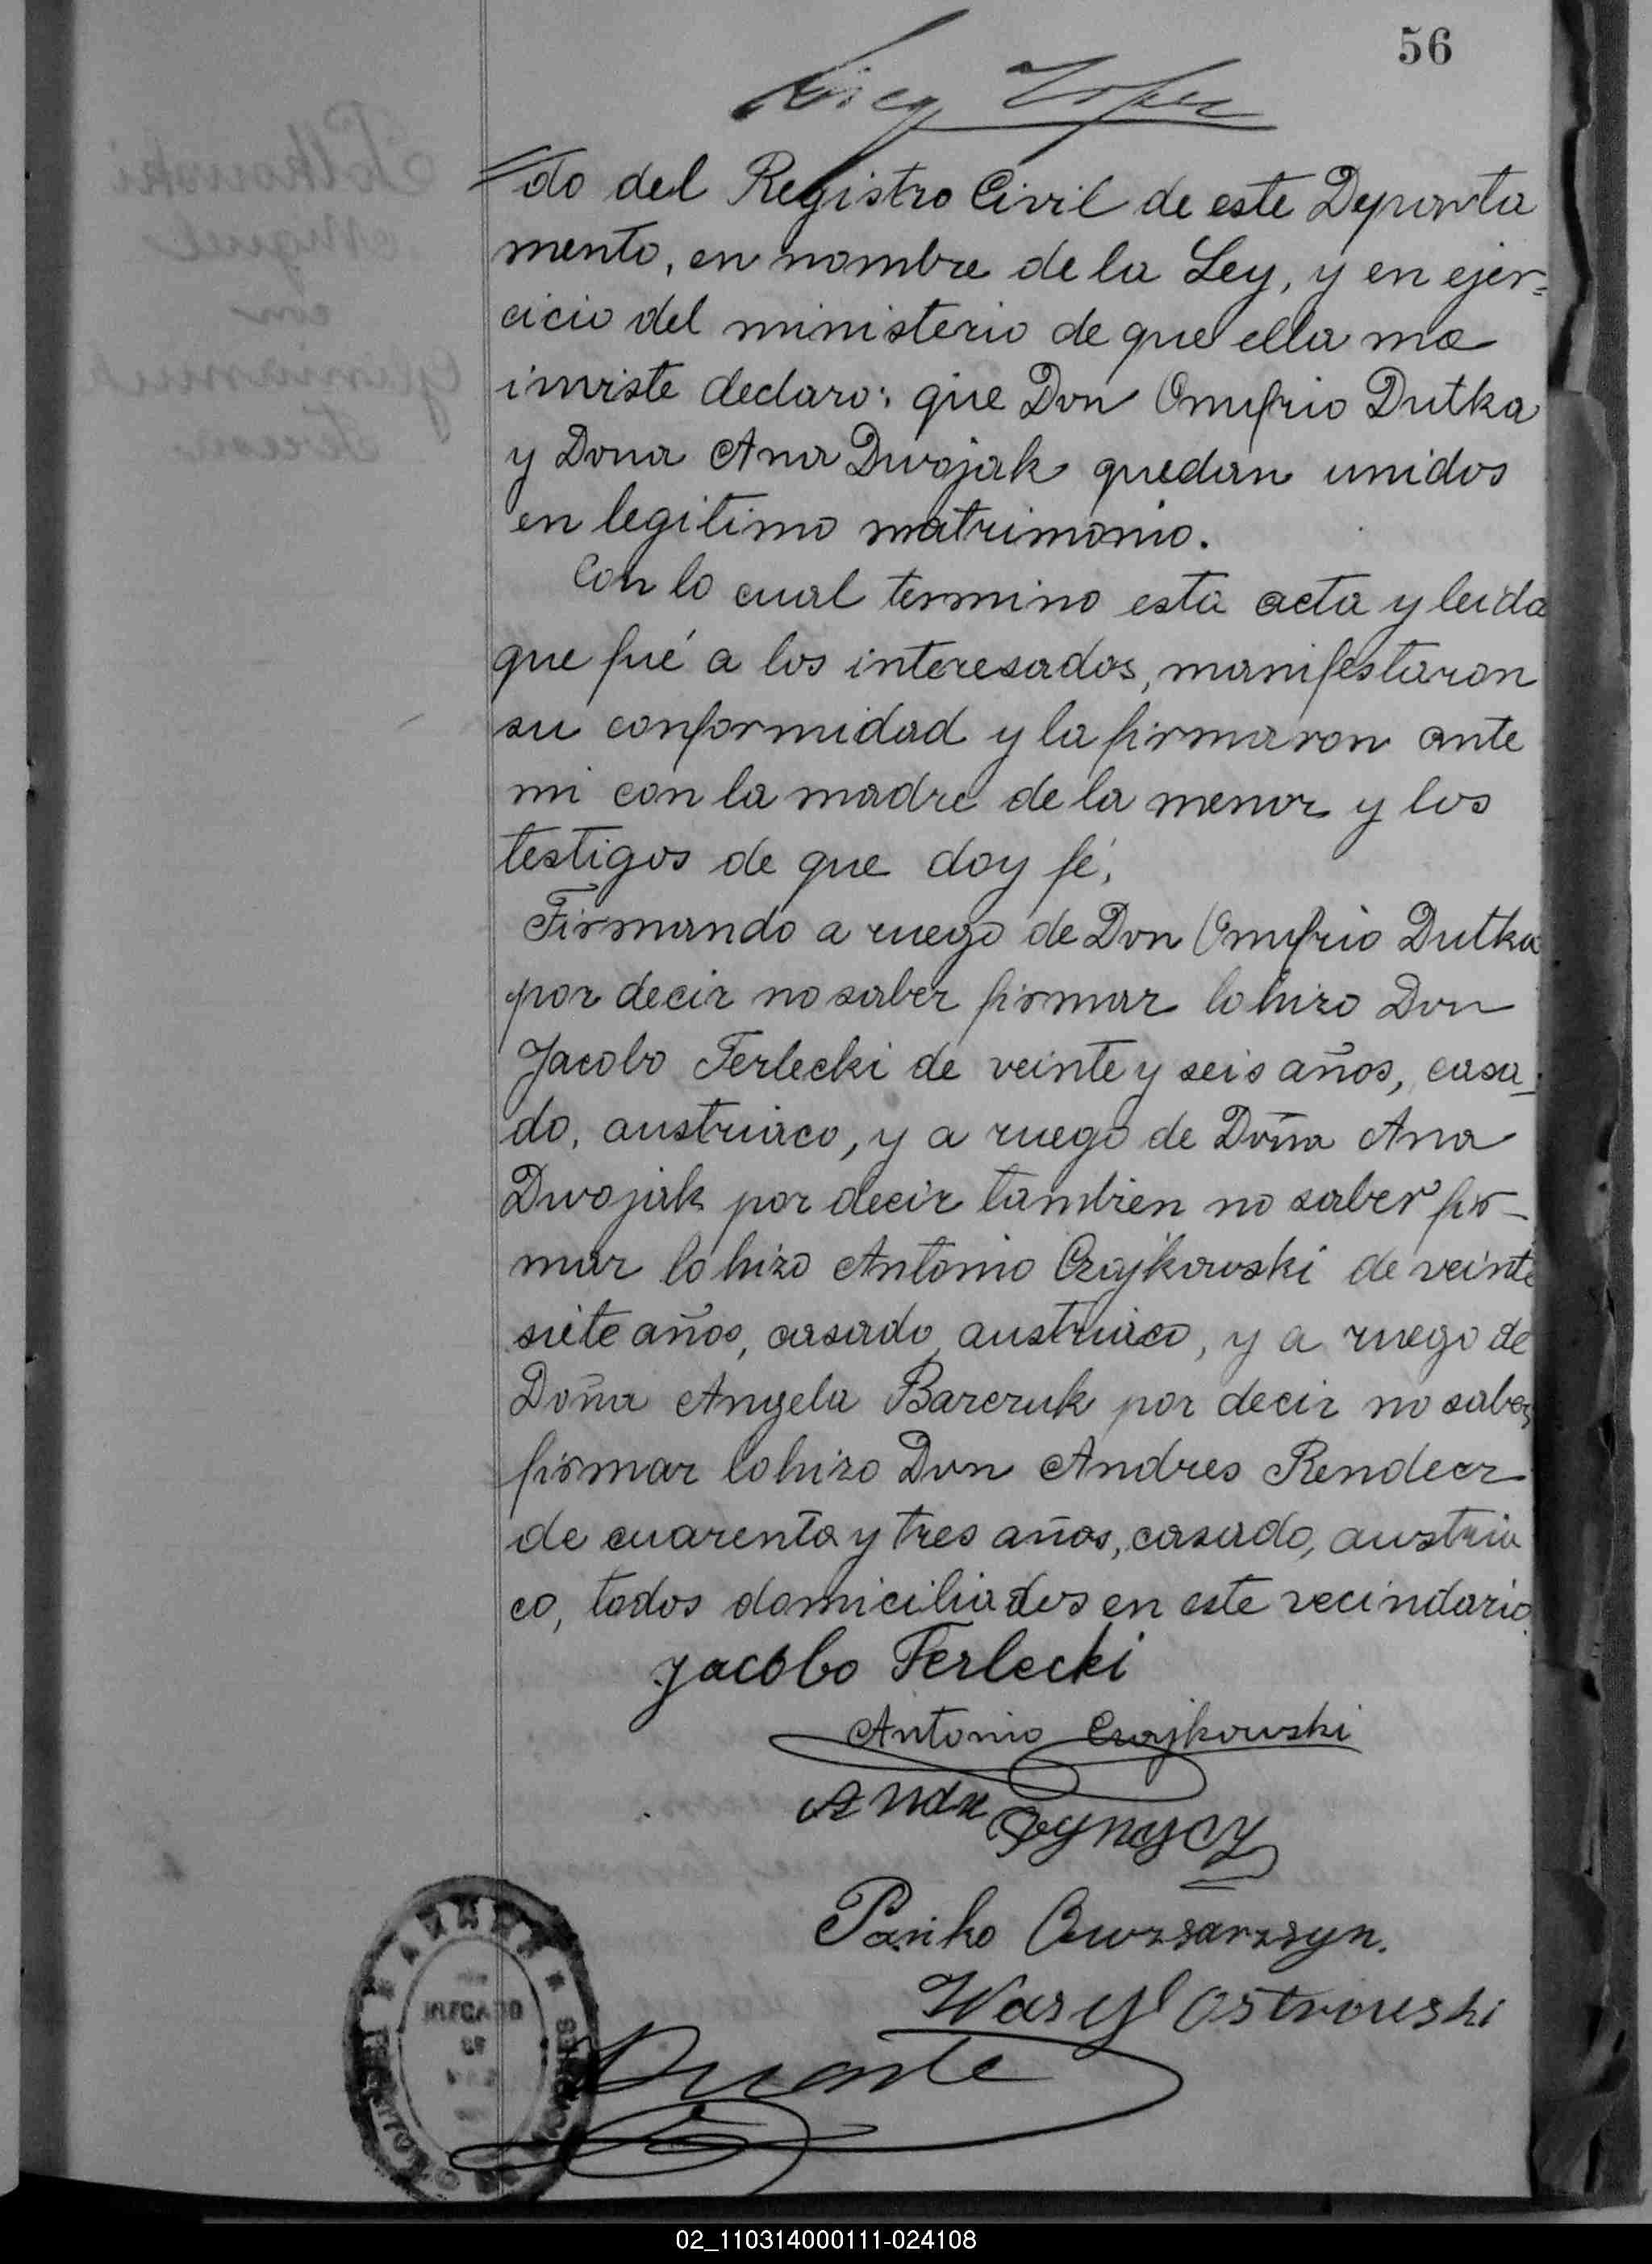 56
do del Registro Civil de este Departa
mento, en nombre de la Ley, y en ejer=
cicio del ministerio de que ella me
inviste declaro: que Don Onufrio Dutka
y Dona Ana Dwojak quedan unidos
en legitimo matrimonio.
Con lo cual termino esta acta y leida
que fué a los interesados, manifestaron
su conformidad y la firmaron ante
mi con la madre de la menor y los
testigos de que doy fé,
Firmando a ruego de Don Onufrio Dutka
por decir no saber firmar lo hizo Don
Jacobo Terlecki de veinte y seis años, casa-
do, austriaco, y a ruego de Doña Ana
Dwojak por decir tambien no saber fir-
mar lo hizo Antonio Czajkowski de veinte
siete años, casado, austriaco, y a ruego de
Doña Angela Barczuk por decir no saber
firmar lo hizo Don Andres Rendecz
de cuarenta y tres años, casado, austria
co, todos domiciliados en este vecindario.
Jacobo Terlecki
Antonio Czajkowski
Pańko
Wasyl Ostrowski
Duarte
DELEGADO
02_110314000111-024108